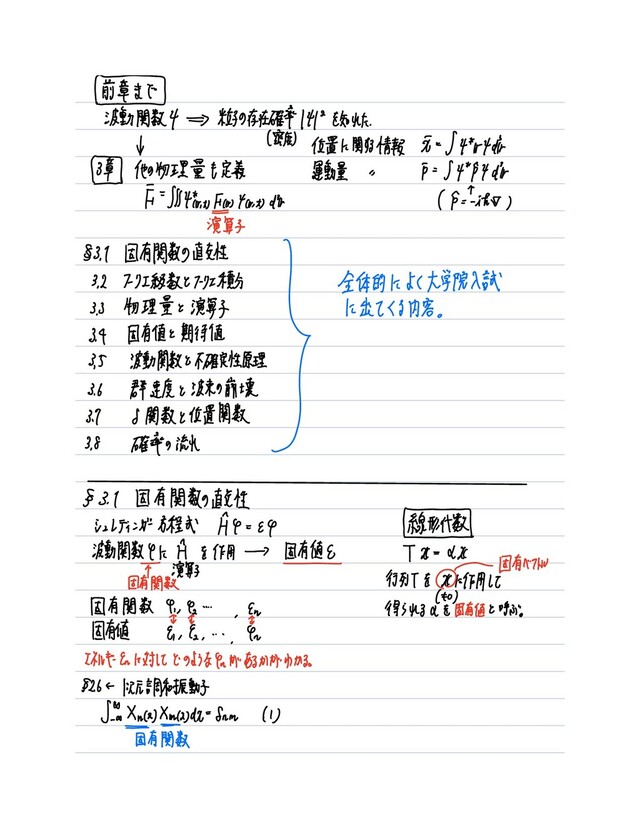 前章まで
波動関数ψ ⟹ 粒子の存在確率|ψ|² を知れた.
(密度)
↓
位置に関する情報 x̄=∫ψ*xψd³r
3章 他の物理量も定義
運動量 〃 p̄=∫ψ*p̂ψd³r
F̄=∭ψ*(r,t) F(r) ψ(r,t) d³r
(p̂=-iħ∇)
演算子
§3.1 固有関数の直交性
3.2 フーリエ級数とフーリエ積分
3.3 物理量と演算子
3.4 固有値と期待値
3.5 波動関数と不確定性原理
3.6 群速度と波束の崩壊
3.7 δ関数と位置関数
3.8 確率の流れ
全体的によく大学院入試
に出てくる内容。
§3.1 固有関数の直交性
シュレディンガー方程式 Ĥφ=εφ
波動関数φに Ĥ を作用 → 固有値ε
↑ 演算子
固有関数
固有関数 φ₁, φ₂ ‥‥, εn
固有値 ε₁, ε₂, ‥‥, φn
エネルギーεnに対してどのようなφnがあるかがわかる。
線形代数
Tx=αx
固有ベクトル
行列Tをxに作用して
(≠0)
得られるαを固有値と呼ぶ。
§2.6 ← 1次元調和振動子
∫_{-∞}^{∞} Xn(x) Xm(x)dx=δnm (1)
固有関数